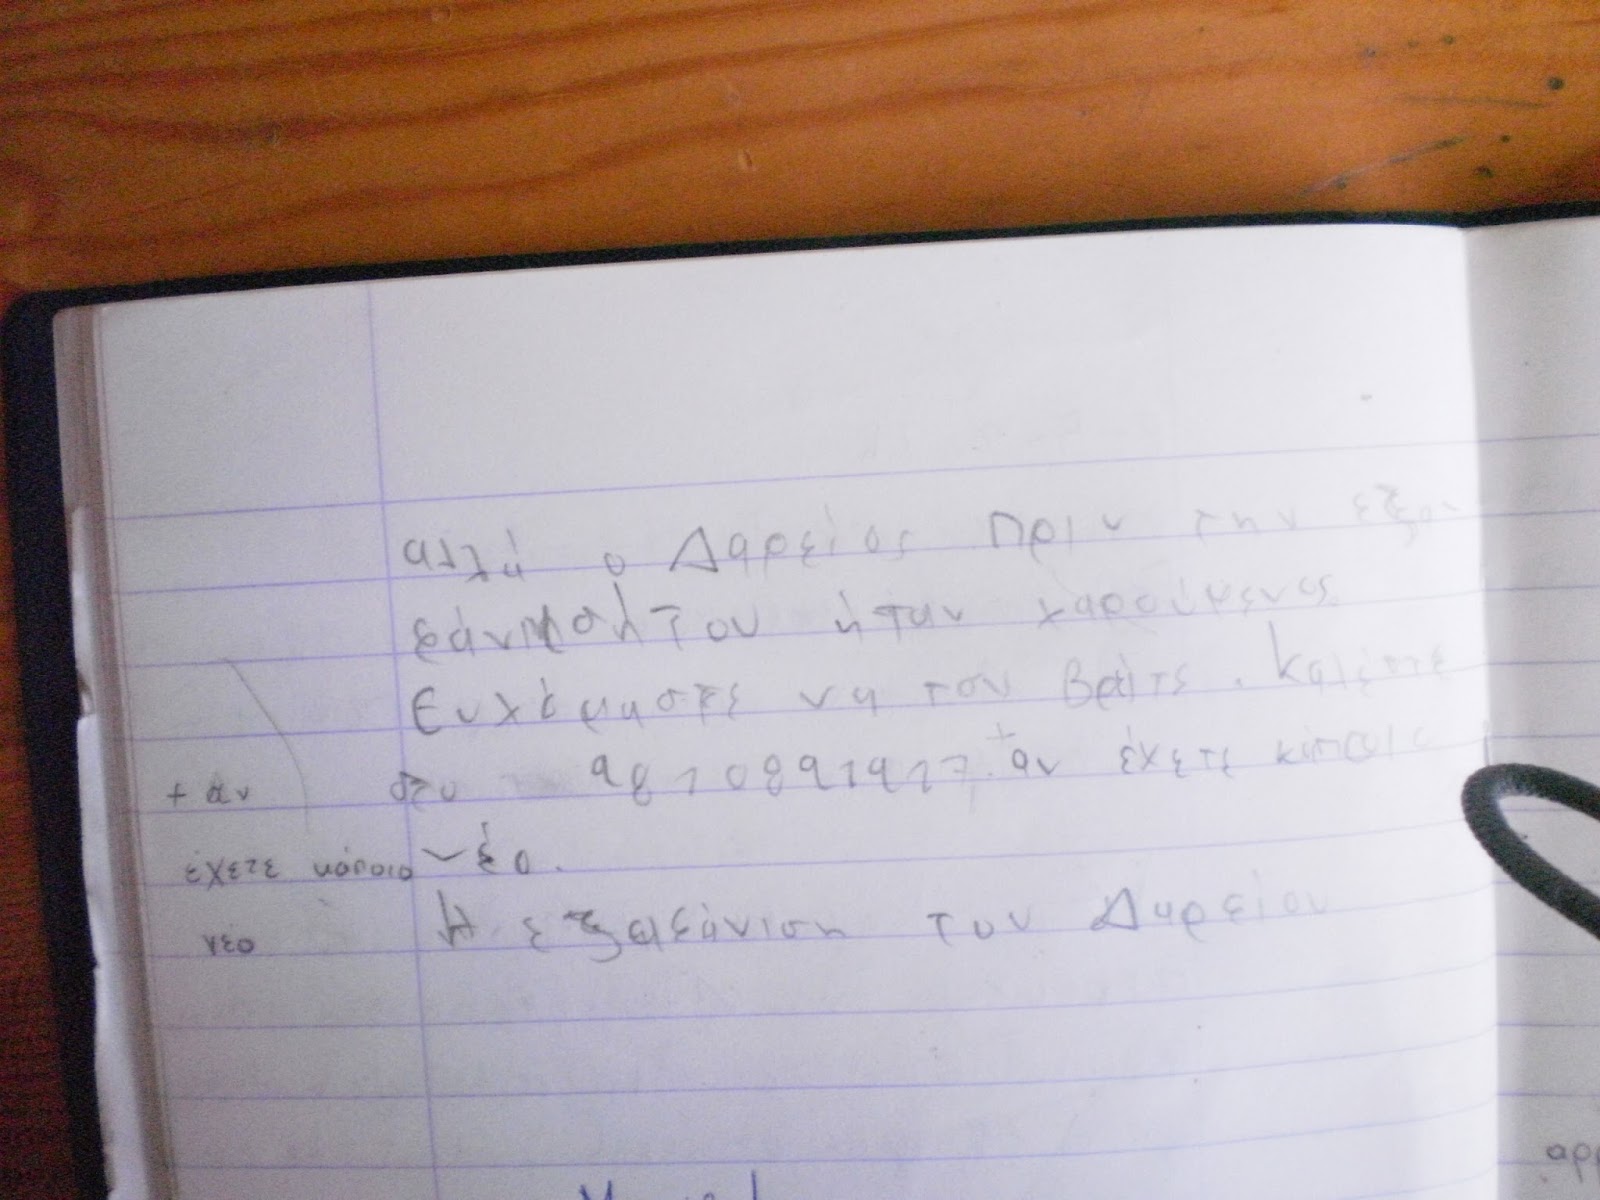 αλλά ο Δαρείος πριν την εξα
φάνηση του ήταν χαρούμενος.
Ευχόμαστε να τον βρίτε. Καλέστε
στο + αν έχετε κάποιο
νέο.
Η εξαφάνιση του Δαρείου
+ αν
έχετε κάποιο
νέο